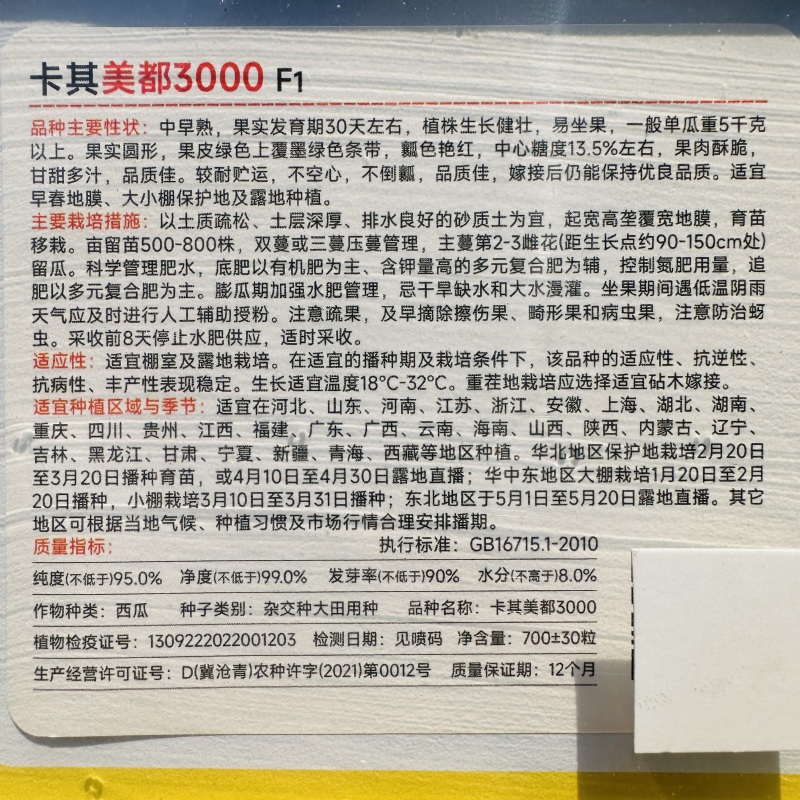 卡其美都3000 F1
品种主要性状：中早熟，果实发育期30天左右，植株生长健壮，易坐果，一般单瓜重5千克
以上。果实圆形，果皮绿色上覆墨绿色条带，瓤色艳红，中心糖度13.5%左右，果肉酥脆，
甘甜多汁，品质佳。较耐贮运，不空心，不倒瓤，品质佳，嫁接后仍能保持优良品质。适宜
早春地膜、大小棚保护地及露地种植。
主要栽培措施：以土质疏松、土层深厚、排水良好的砂质土为宜，起宽高垄覆宽地膜，育苗
移栽。亩留苗500-800株，双蔓或三蔓压蔓管理，主蔓第2-3雌花(距生长点约90-150cm处)
留瓜。科学管理肥水，底肥以有机肥为主、含钾量高的多元复合肥为辅，控制氮肥用量，追
肥以多元复合肥为主。膨瓜期加强水肥管理，忌干旱缺水和大水漫灌。坐果期间遇低温阴雨
天气应及时进行人工辅助授粉。注意疏果，及早摘除擦伤果、畸形果和病虫果，注意防治蚜
虫。采收前8天停止水肥供应，适时采收。
适应性：适宜棚室及露地栽培。在适宜的播种期及栽培条件下，该品种的适应性、抗逆性、
抗病性、丰产性表现稳定。生长适宜温度18°C-32°C。重茬地栽培应选择适宜砧木嫁接。
适宜种植区域与季节：适宜在河北、山东、河南、江苏、浙江、安徽、上海、湖北、湖南、
重庆、四川、贵州、江西、福建、广东、广西、云南、海南、山西、陕西、内蒙古、辽宁、
吉林、黑龙江、甘肃、宁夏、新疆、青海、西藏等地区种植。华北地区保护地栽培2月20日
至3月20日播种育苗，或4月10日至4月30日露地直播；华中东地区大棚栽培1月20日至2月
20日播种，小棚栽培3月10日至3月31日播种；东北地区于5月1日至5月20日露地直播。其它
地区可根据当地气候、种植习惯及市场行情合理安排播期。
质量指标： 执行标准：GB16715.1-2010
纯度(不低于)95.0% 净度(不低于)99.0% 发芽率(不低于)90% 水分(不高于)8.0%
作物种类：西瓜 种子类别：杂交种大田用种 品种名称：卡其美都3000
植物检疫证号：1309222022001203 检测日期：见喷码 净含量：700±30粒
生产经营许可证号：D(冀沧青)农种许字(2021)第0012号 质量保证期：12个月